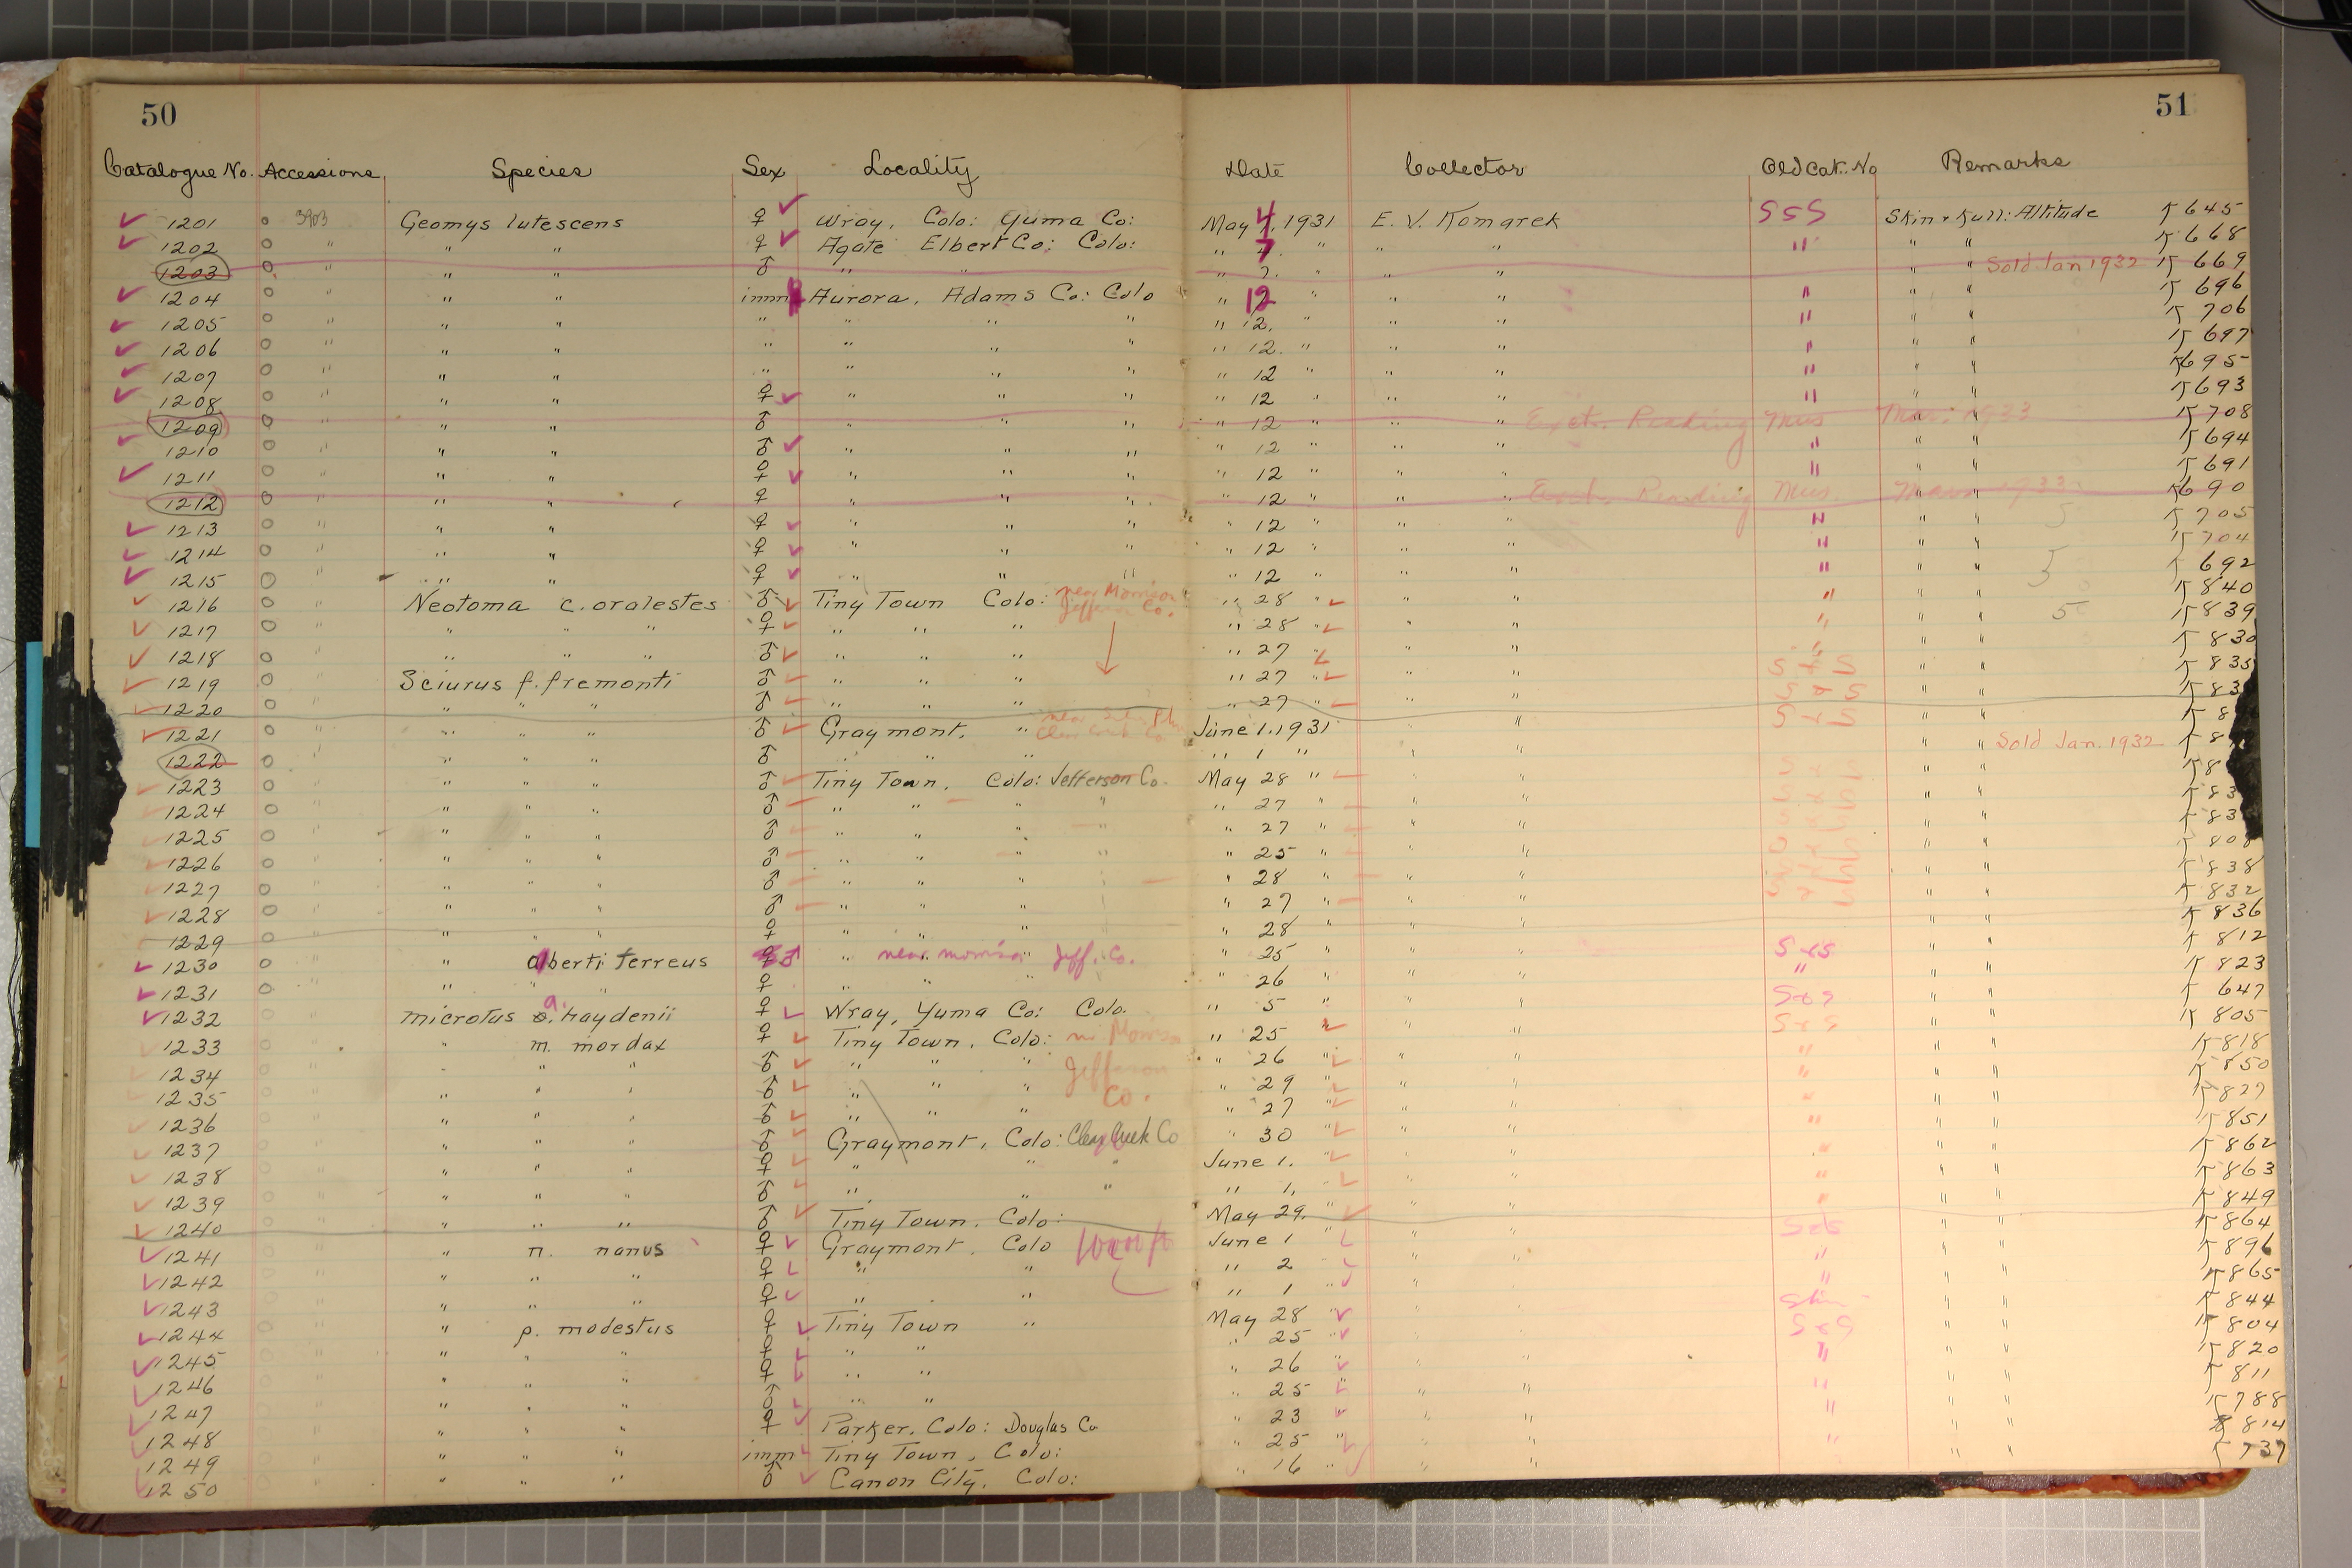 50
51
Catalogue No. Accessions Species Sex Locality Date Collector Old Cat. No Remarks
1201 3903 Geomys lutescens ♀ Wray, Colo: Yuma Co: May 4, 1931 E. V. Komarek S&S Skin & Skull: Altitude 645
1202 " " " ♀ Agate Elbert Co: Colo: " 7 " " " " " " 668
1203 " " " ♂ " " " 7. " " " " " Sold Jan 1932 669
1204 " " " imm Aurora, Adams Co: Colo " 12 " " " " " " 696
1205 " " " " " " " " 12. " " " " " " 706
1206 " " " " " " " " 12. " " " " " " 697
1207 " " " " " " " " 12 " " " " " " 695
1208 " " " ♀ " " " " 12 " " " " " " 693
1209 " " " ♂ " " " " 12 " " " Exch. Reading Mus Mar. 1933 708
1210 " " " ♂ " " " " 12 " " " " " " 694
1211 " " " ♀ " " " " 12 " " " " " " 691
1212 " " " ♀ " " " " 12 " " " Exch. Reading Mus. Mar. 1933 690
1213 " " " ♀ " " " " 12 " " " " " " 705
1214 " " " ♀ " " " " 12 " " " " " " 704
1215 " " " ♀ " " " " 12 " " " " " " 692
1216 " Neotoma c. orolestes ♂ Tiny Town Colo: near Morrison Jefferson Co. " 28 " " " " " " 840
1217 " " " " ♀ " " " " 28 " " " " " " 839
1218 " " " " ♂ " " " " 27 " " " " " " 830
1219 " Sciurus f. fremonti ♂ " " " " 27 " " " S & S " " 835
1220 " " " " ♂ " " " " 27 " " " S & S " "
1221 " " " " ♂ Graymont, " Clear Creek Co. June 1. 1931 " " S & S " "
1222 " " " " ♂ " " " " 1 " " " " " Sold Jan. 1932
1223 " " " " ♂ Tiny Town, Colo: Jefferson Co. May 28 " " " " "
1224 " " " " ♂ " " " " " 27 " " " " "
1225 " " " " ♂ " " " " " 27 " " " " "
1226 " " " " ♂ " " " " " 25 " " " " " 808
1227 " " " " ♂ " " " " 28 " " " " " 838
1228 " " " " ♂ " " " " 27 " " " " " 832
1229 " " " " ♀ " " " " 28 " " " " " 836
1230 " " alberti ferreus ♂ " near morrison Jeff. Co. " 25 " " " S & S " " 812
1231 " " " " ♀ " " " " 26 " " " " " " 823
1232 " Microtus o. a. haydenii ♀ Wray, Yuma Co: Colo. " 5 " " " S & S " " 647
1233 " " m. mordax ♀ Tiny Town, Colo: nr Morrison " 25 " " S & S " " 805
1234 " " " " ♂ " " " Jefferson " 26 " " " " " " 818
1235 " " " " ♂ " " " Co. " 29 " " " " " " 850
1236 " " " " ♂ " " " " 27 " " " " " " 827
1237 " " " " ♂ Graymont, Colo: Clear Creek Co " 30 " " " " " " 851
1238 " " " " ♀ " " " June 1. " " " " " 862
1239 " " " " ♂ " " " " 1, " " " " " 863
1240 " " " " ♂ Tiny Town, Colo: May 29. " " " " " 849
1241 " " n. nanus ♀ Graymont, Colo June 1 " " " S & S " " 864
1242 " " " " ♀ " " " 2 " " " " " " 896
1243 " " " " ♀ " " " 1 " " " " " " 865
1244 " " p. modestus ♀ Tiny Town " May 28 " " " Skin " " 844
1245 " " " " ♀ " " " 25 " " " S & S " " 804
1246 " " " " ♀ " " " 26 " " " " " " 820
1247 " " " " ♂ " " " 25 " " " " " " 811
1248 " " " " ♀ Parker, Colo: Douglas Co " 23 " " " " " " 788
1249 " " " " imm Tiny Town, Colo: " 25 " " " " " " 814
1250 " " " " ♂ Canon City, Colo: " 16 " " " " " 737